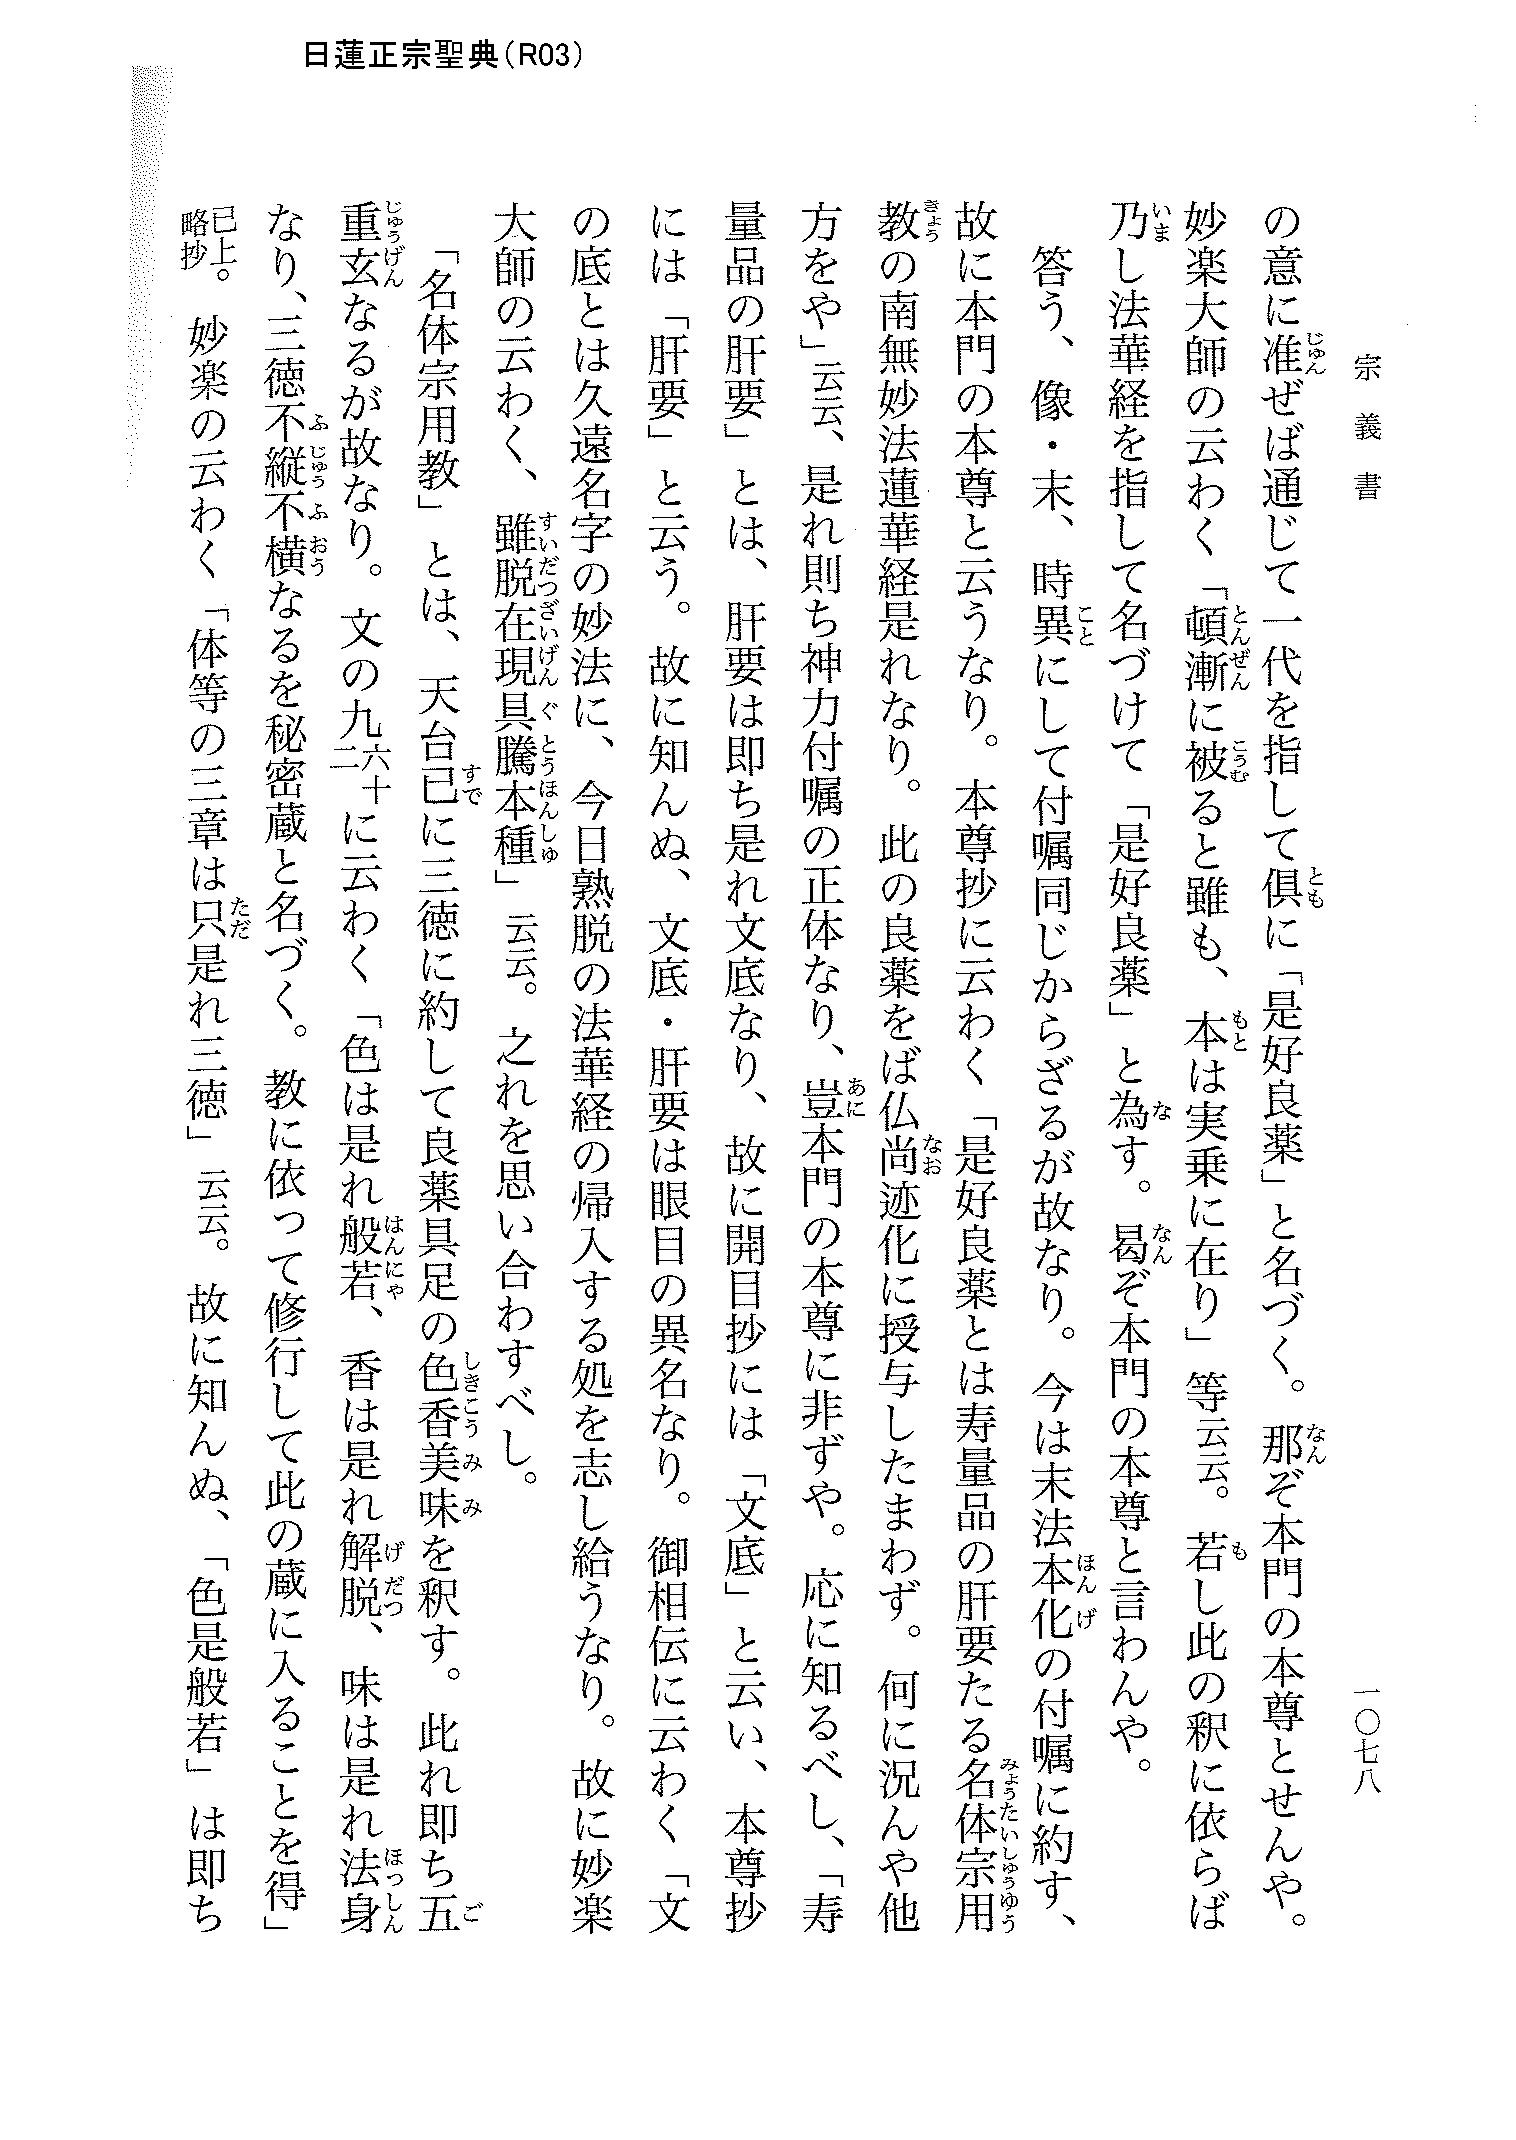 日蓮正宗聖典（R03）
宗義書
一〇七八
の意に准ぜば通じて一代を指して倶に「是好良薬」と名づく。那ぞ本門の本尊とせんや。
妙楽大師の云わく「頓漸に被ると雖も、本は実乗に在り」等云云。若し此の釈に依らば
乃し法華経を指して名づけて「是好良薬」と為す。曷ぞ本門の本尊と言わんや。
答う、像・末、時異にして付嘱同じからざるが故なり。今は末法本化の付嘱に約す、
故に本門の本尊と云うなり。本尊抄に云わく「是好良薬とは寿量品の肝要たる名体宗用
教の南無妙法蓮華経是れなり。此の良薬をば仏尚迹化に授与したまわず。何に況んや他
方をや」云云、是れ則ち神力付嘱の正体なり、豈本門の本尊に非ずや。応に知るべし、「寿
量品の肝要」とは、肝要は即ち是れ文底なり、故に開目抄には「文底」と云い、本尊抄
には「肝要」と云う。故に知んぬ、文底・肝要は眼目の異名なり。御相伝に云わく「文
の底とは久遠名字の妙法に、今日熟脱の法華経の帰入する処を志し給うなり。故に妙楽
大師の云わく、雖脱在現具騰本種」云云。之れを思い合わすべし。
「名体宗用教」とは、天台已に三徳に約して良薬具足の色香美味を釈す。此れ即ち五
重玄なるが故なり。文の九六十二に云わく「色は是れ般若、香は是れ解脱、味は是れ法身
なり、三徳不縦不横なるを秘密蔵と名づく。教に依って修行して此の蔵に入ることを得」
已上略抄。妙楽の云わく「体等の三章は只是れ三徳」云云。故に知んぬ、「色是般若」は即ち